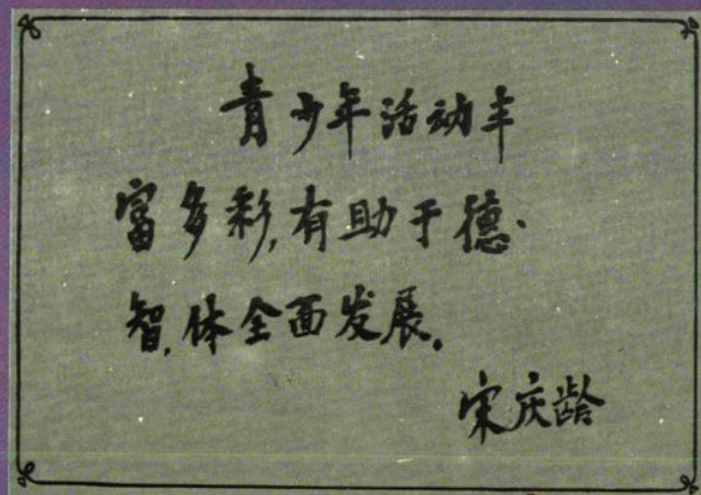 青少年活动丰
富多彩,有助于德.
智,体全面发展.
宋庆龄